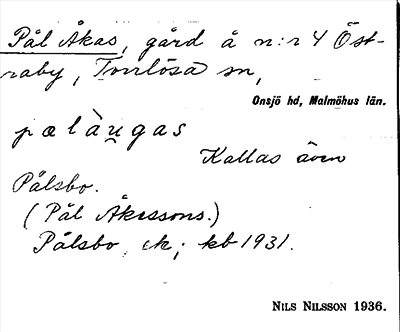 Pål Åkas, gård å n:r 4 Öst-
raby, Torrlösa sn,
Onsjö hd, Malmöhus län.
pælàu̯gas
Kallas även
Pålsbo.
(Pål Åkessons.)
Pålsbo, ek; kb 1931.
NILS NILSSON 1936.